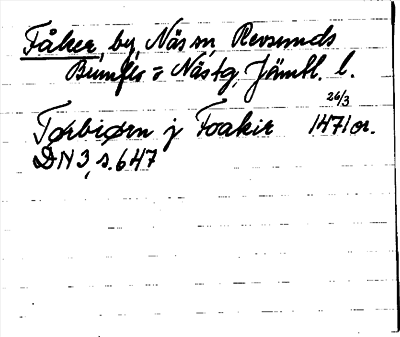 Fåker, by, Näs sn, Revsunds
Brunflo o Näs tg, Jämtl. l.
26/3
Torbiørn j Foaker 1471 or.
DN 3, s. 647